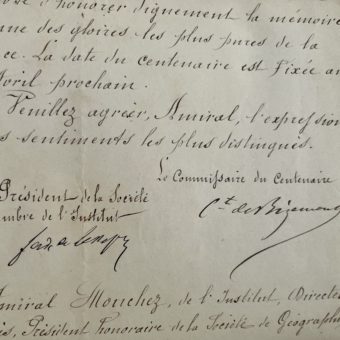 d'honorer dignement la mémoire
une des gloires les plus pures de la
ce. La date du centenaire est fixée au
Avril prochain.
Veuillez agréer, Amiral, l'expression
s sentiments les plus distingués.
Le Commissaire du Centenaire
Président de la Société
mbre de l'Institut
Ct. de Bizemont
Amiral Mouchez, de l'Institut, Directe
is, Président honoraire de la Société de Géographi